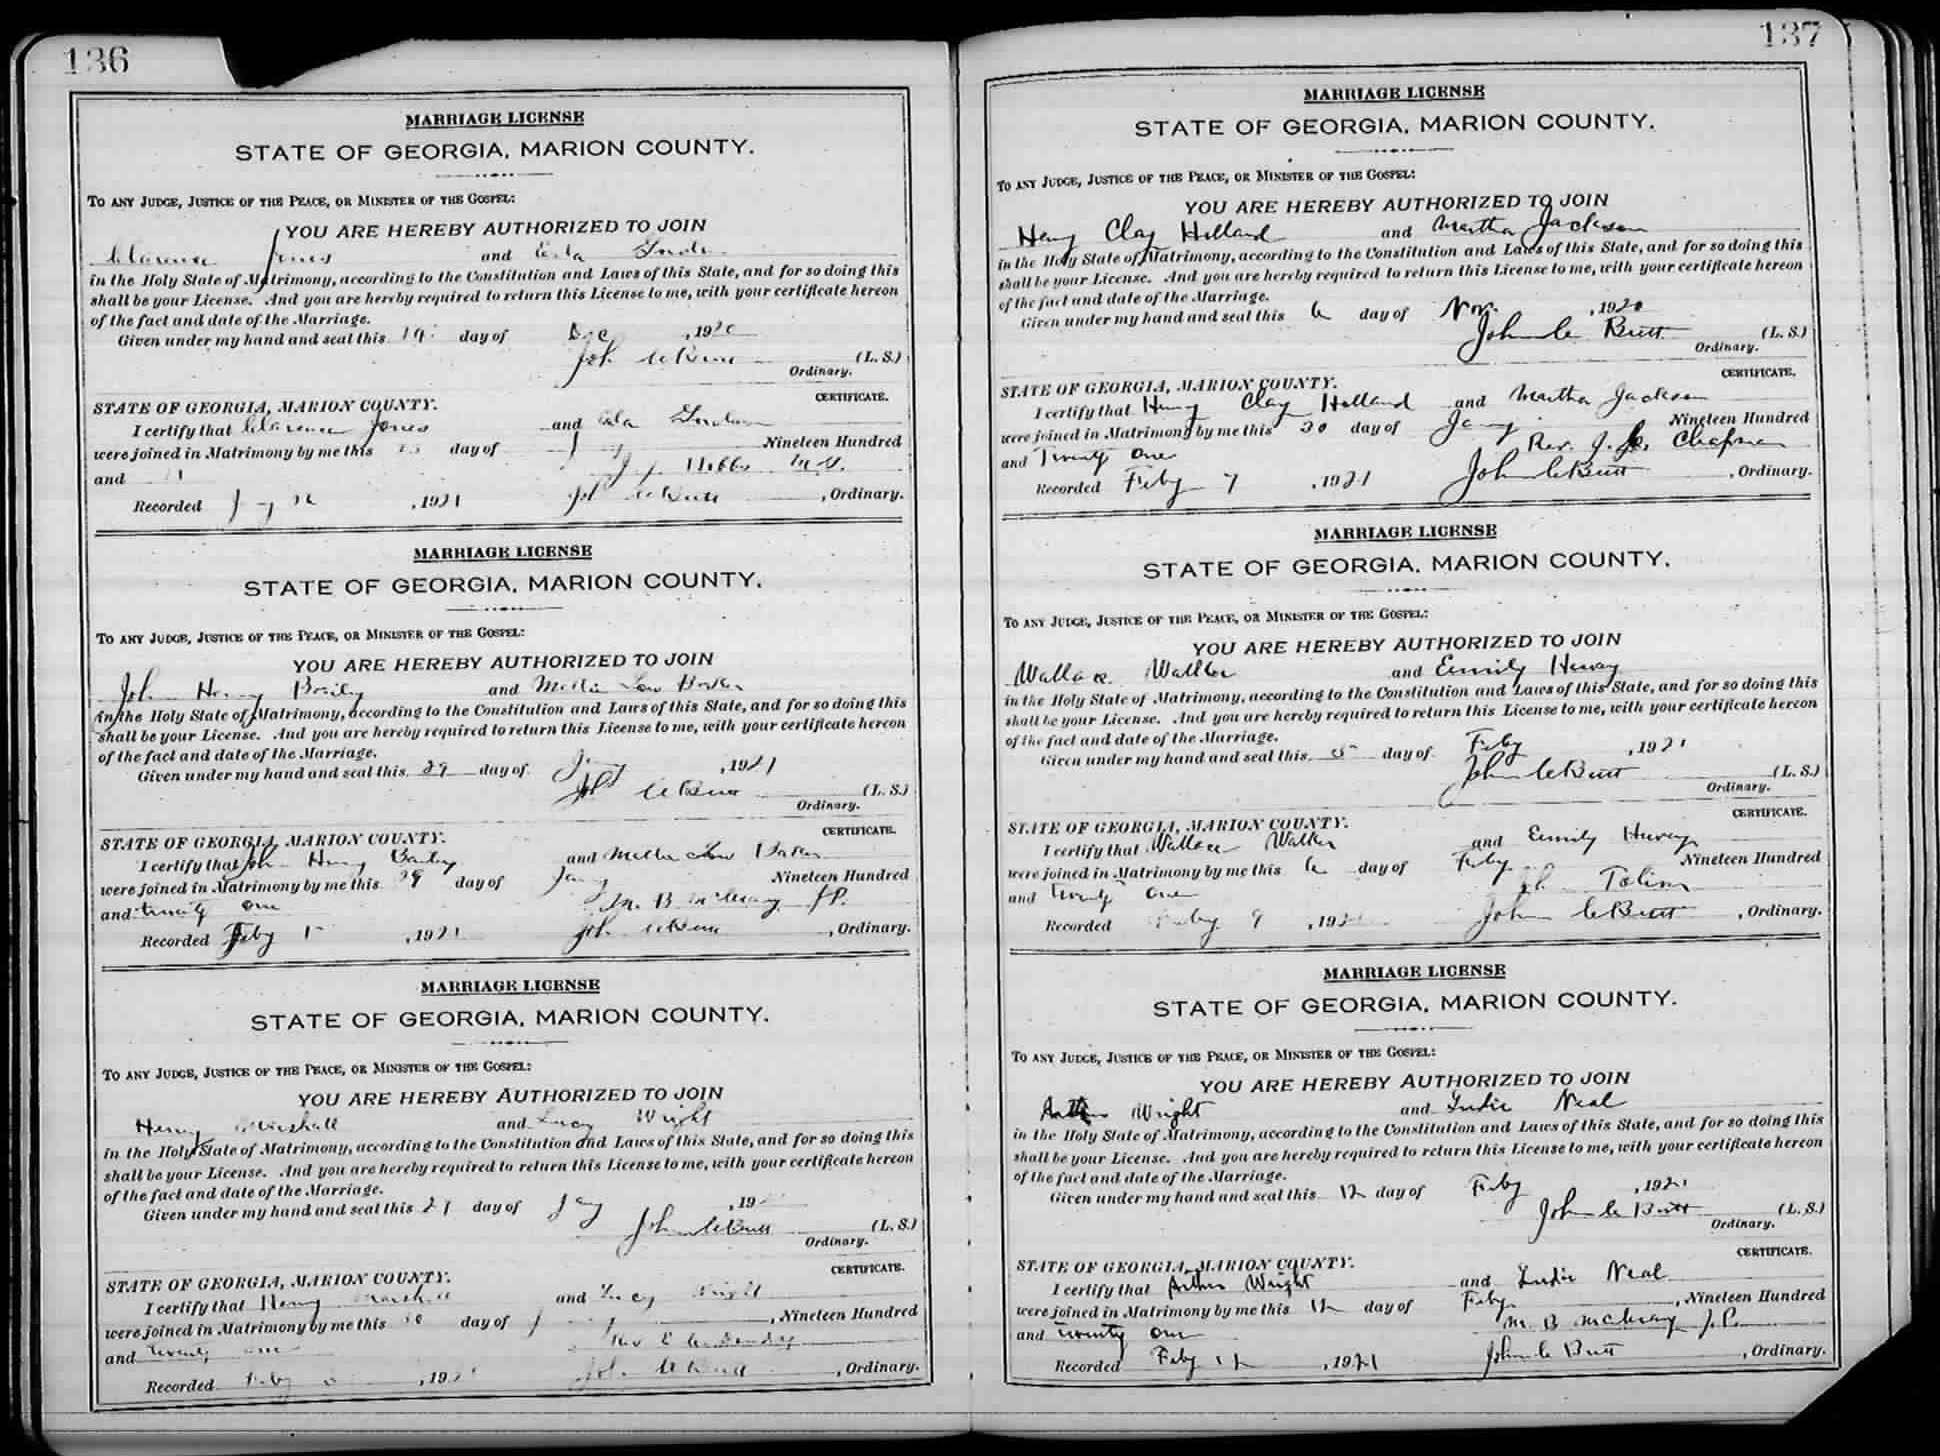 136
MARRIAGE LICENSE
STATE OF GEORGIA, MARION COUNTY.
TO ANY JUDGE, JUSTICE OF THE PEACE, OR MINISTER OF THE GOSPEL:
YOU ARE HEREBY AUTHORIZED TO JOIN
Clarence Jones and
in the Holy State of Matrimony, according to the Constitution and Laws of this State, and for so doing this
shall be your License. And you are hereby required to return this License to me, with your certificate hereon
of the fact and date of the Marriage.
Given under my hand and seal this 19 day of Dec, 1920
(L. S.)
Ordinary.
CERTIFICATE.
STATE OF GEORGIA, MARION COUNTY.
I certify that Clarence Jones and
were joined in Matrimony by me this day of Nineteen Hundred
and
Recorded , 1921 John C Butt, Ordinary.
MARRIAGE LICENSE
STATE OF GEORGIA, MARION COUNTY.
TO ANY JUDGE, JUSTICE OF THE PEACE, OR MINISTER OF THE GOSPEL:
YOU ARE HEREBY AUTHORIZED TO JOIN
John Henry and
in the Holy State of Matrimony, according to the Constitution and Laws of this State, and for so doing this
shall be your License. And you are hereby required to return this License to me, with your certificate hereon
of the fact and date of the Marriage.
Given under my hand and seal this 29 day of Jany, 1921
John C Butt (L. S.)
Ordinary.
CERTIFICATE.
STATE OF GEORGIA, MARION COUNTY.
I certify that John Henry and
were joined in Matrimony by me this 29 day of Jany Nineteen Hundred
and twenty one M. B. McCrary J.P.
Recorded Feby 1, 1921 John C Butt, Ordinary.
MARRIAGE LICENSE
STATE OF GEORGIA, MARION COUNTY.
TO ANY JUDGE, JUSTICE OF THE PEACE, OR MINISTER OF THE GOSPEL:
YOU ARE HEREBY AUTHORIZED TO JOIN
Henry Marshall and Lucy Wright
in the Holy State of Matrimony, according to the Constitution and Laws of this State, and for so doing this
shall be your License. And you are hereby required to return this License to me, with your certificate hereon
of the fact and date of the Marriage.
Given under my hand and seal this day of Jany, 192
John C Butt (L. S.)
Ordinary.
CERTIFICATE.
STATE OF GEORGIA, MARION COUNTY.
I certify that Henry Marshall and Lucy Wright
were joined in Matrimony by me this day of , Nineteen Hundred
and twenty one Rev
Recorded Feby , 192 John C Butt, Ordinary.
137
MARRIAGE LICENSE
STATE OF GEORGIA, MARION COUNTY.
TO ANY JUDGE, JUSTICE OF THE PEACE, OR MINISTER OF THE GOSPEL:
YOU ARE HEREBY AUTHORIZED TO JOIN
Henry Clay Holland and Martha Jackson
in the Holy State of Matrimony, according to the Constitution and Laws of this State, and for so doing this
shall be your License. And you are hereby required to return this License to me, with your certificate hereon
of the fact and date of the Marriage.
Given under my hand and seal this 6 day of Nov., 1920
John C Butt (L. S.)
Ordinary.
CERTIFICATE.
STATE OF GEORGIA, MARION COUNTY.
I certify that Henry Clay Holland and Martha Jackson
were joined in Matrimony by me this 30 day of Jany Nineteen Hundred
and Twenty one Rev. J. Chapman
Recorded Feby 7, 1921 John C Butt, Ordinary.
MARRIAGE LICENSE
STATE OF GEORGIA, MARION COUNTY.
TO ANY JUDGE, JUSTICE OF THE PEACE, OR MINISTER OF THE GOSPEL:
YOU ARE HEREBY AUTHORIZED TO JOIN
Wallace Walker and Emily Harvey
in the Holy State of Matrimony, according to the Constitution and Laws of this State, and for so doing this
shall be your License. And you are hereby required to return this License to me, with your certificate hereon
of the fact and date of the Marriage.
Given under my hand and seal this 5 day of Feby, 1921
John C Butt (L. S.)
Ordinary.
CERTIFICATE.
STATE OF GEORGIA, MARION COUNTY.
I certify that Wallace Walker and Emily Harvey
were joined in Matrimony by me this 6 day of Feby Nineteen Hundred
and twenty one
Recorded Feby 9, 192 John C Butt, Ordinary.
MARRIAGE LICENSE
STATE OF GEORGIA, MARION COUNTY.
TO ANY JUDGE, JUSTICE OF THE PEACE, OR MINISTER OF THE GOSPEL:
YOU ARE HEREBY AUTHORIZED TO JOIN
Arthur Wright and Ludie Neal
in the Holy State of Matrimony, according to the Constitution and Laws of this State, and for so doing this
shall be your License. And you are hereby required to return this License to me, with your certificate hereon
of the fact and date of the Marriage.
Given under my hand and seal this 12 day of Feby, 1921
John C Butt (L. S.)
Ordinary.
CERTIFICATE.
STATE OF GEORGIA, MARION COUNTY.
I certify that Arthur Wright and Ludie Neal
were joined in Matrimony by me this 12 day of Feby, Nineteen Hundred
and twenty one M. B. McCrary J.P.
Recorded Feby 12, 1921 John C Butt, Ordinary.